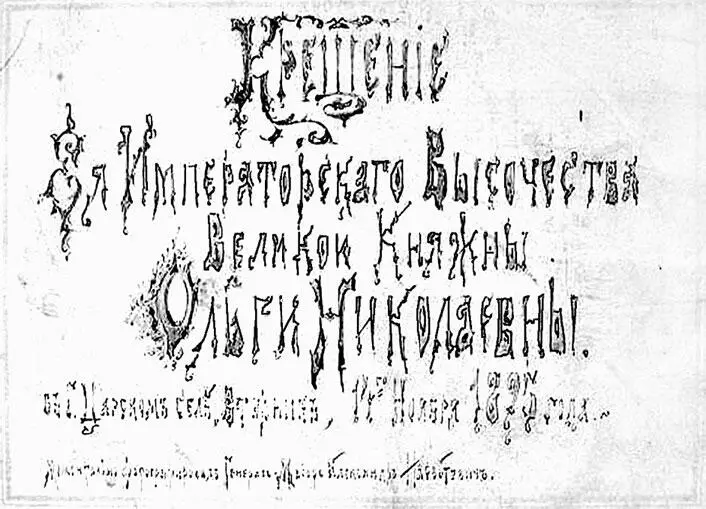 Крещеніе
Ея Императорскаго Высочества
Великой Княжны
Ольги Николаевны.
въ г. Царскомъ селѣ, Вторникъ, 14го Ноября 1895 года.
Генералъ Маіоръ Александръ